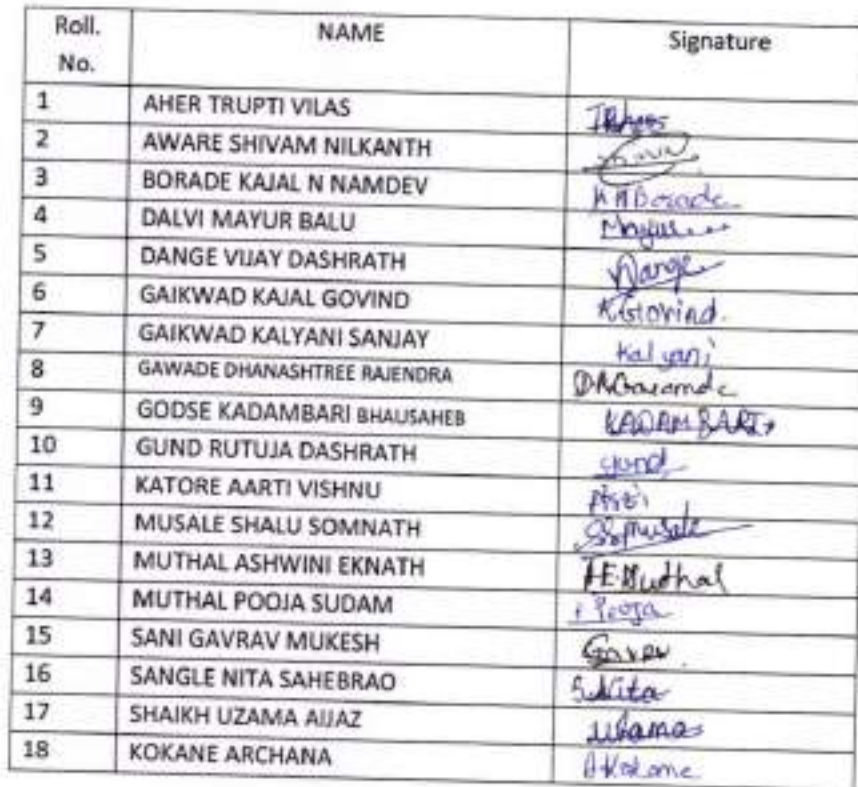 Roll. No. NAME Signature
1 AHER TRUPTI VILAS
2 AWARE SHIVAM NILKANTH
3 BORADE KAJAL N NAMDEV K N Borade
4 DALVI MAYUR BALU Mayur
5 DANGE VIJAY DASHRATH Dange
6 GAIKWAD KAJAL GOVIND K Govind.
7 GAIKWAD KALYANI SANJAY Kalyani
8 GAWADE DHANASHTREE RAJENDRA
9 GODSE KADAMBARI BHAUSAHEB KADAMBARI
10 GUND RUTUJA DASHRATH gund
11 KATORE AARTI VISHNU
12 MUSALE SHALU SOMNATH SSMusale
13 MUTHAL ASHWINI EKNATH A.E.Muthal
14 MUTHAL POOJA SUDAM Pooja
15 SANI GAVRAV MUKESH
16 SANGLE NITA SAHEBRAO S.Nita
17 SHAIKH UZAMA AIJAZ
18 KOKANE ARCHANA A.Kokane